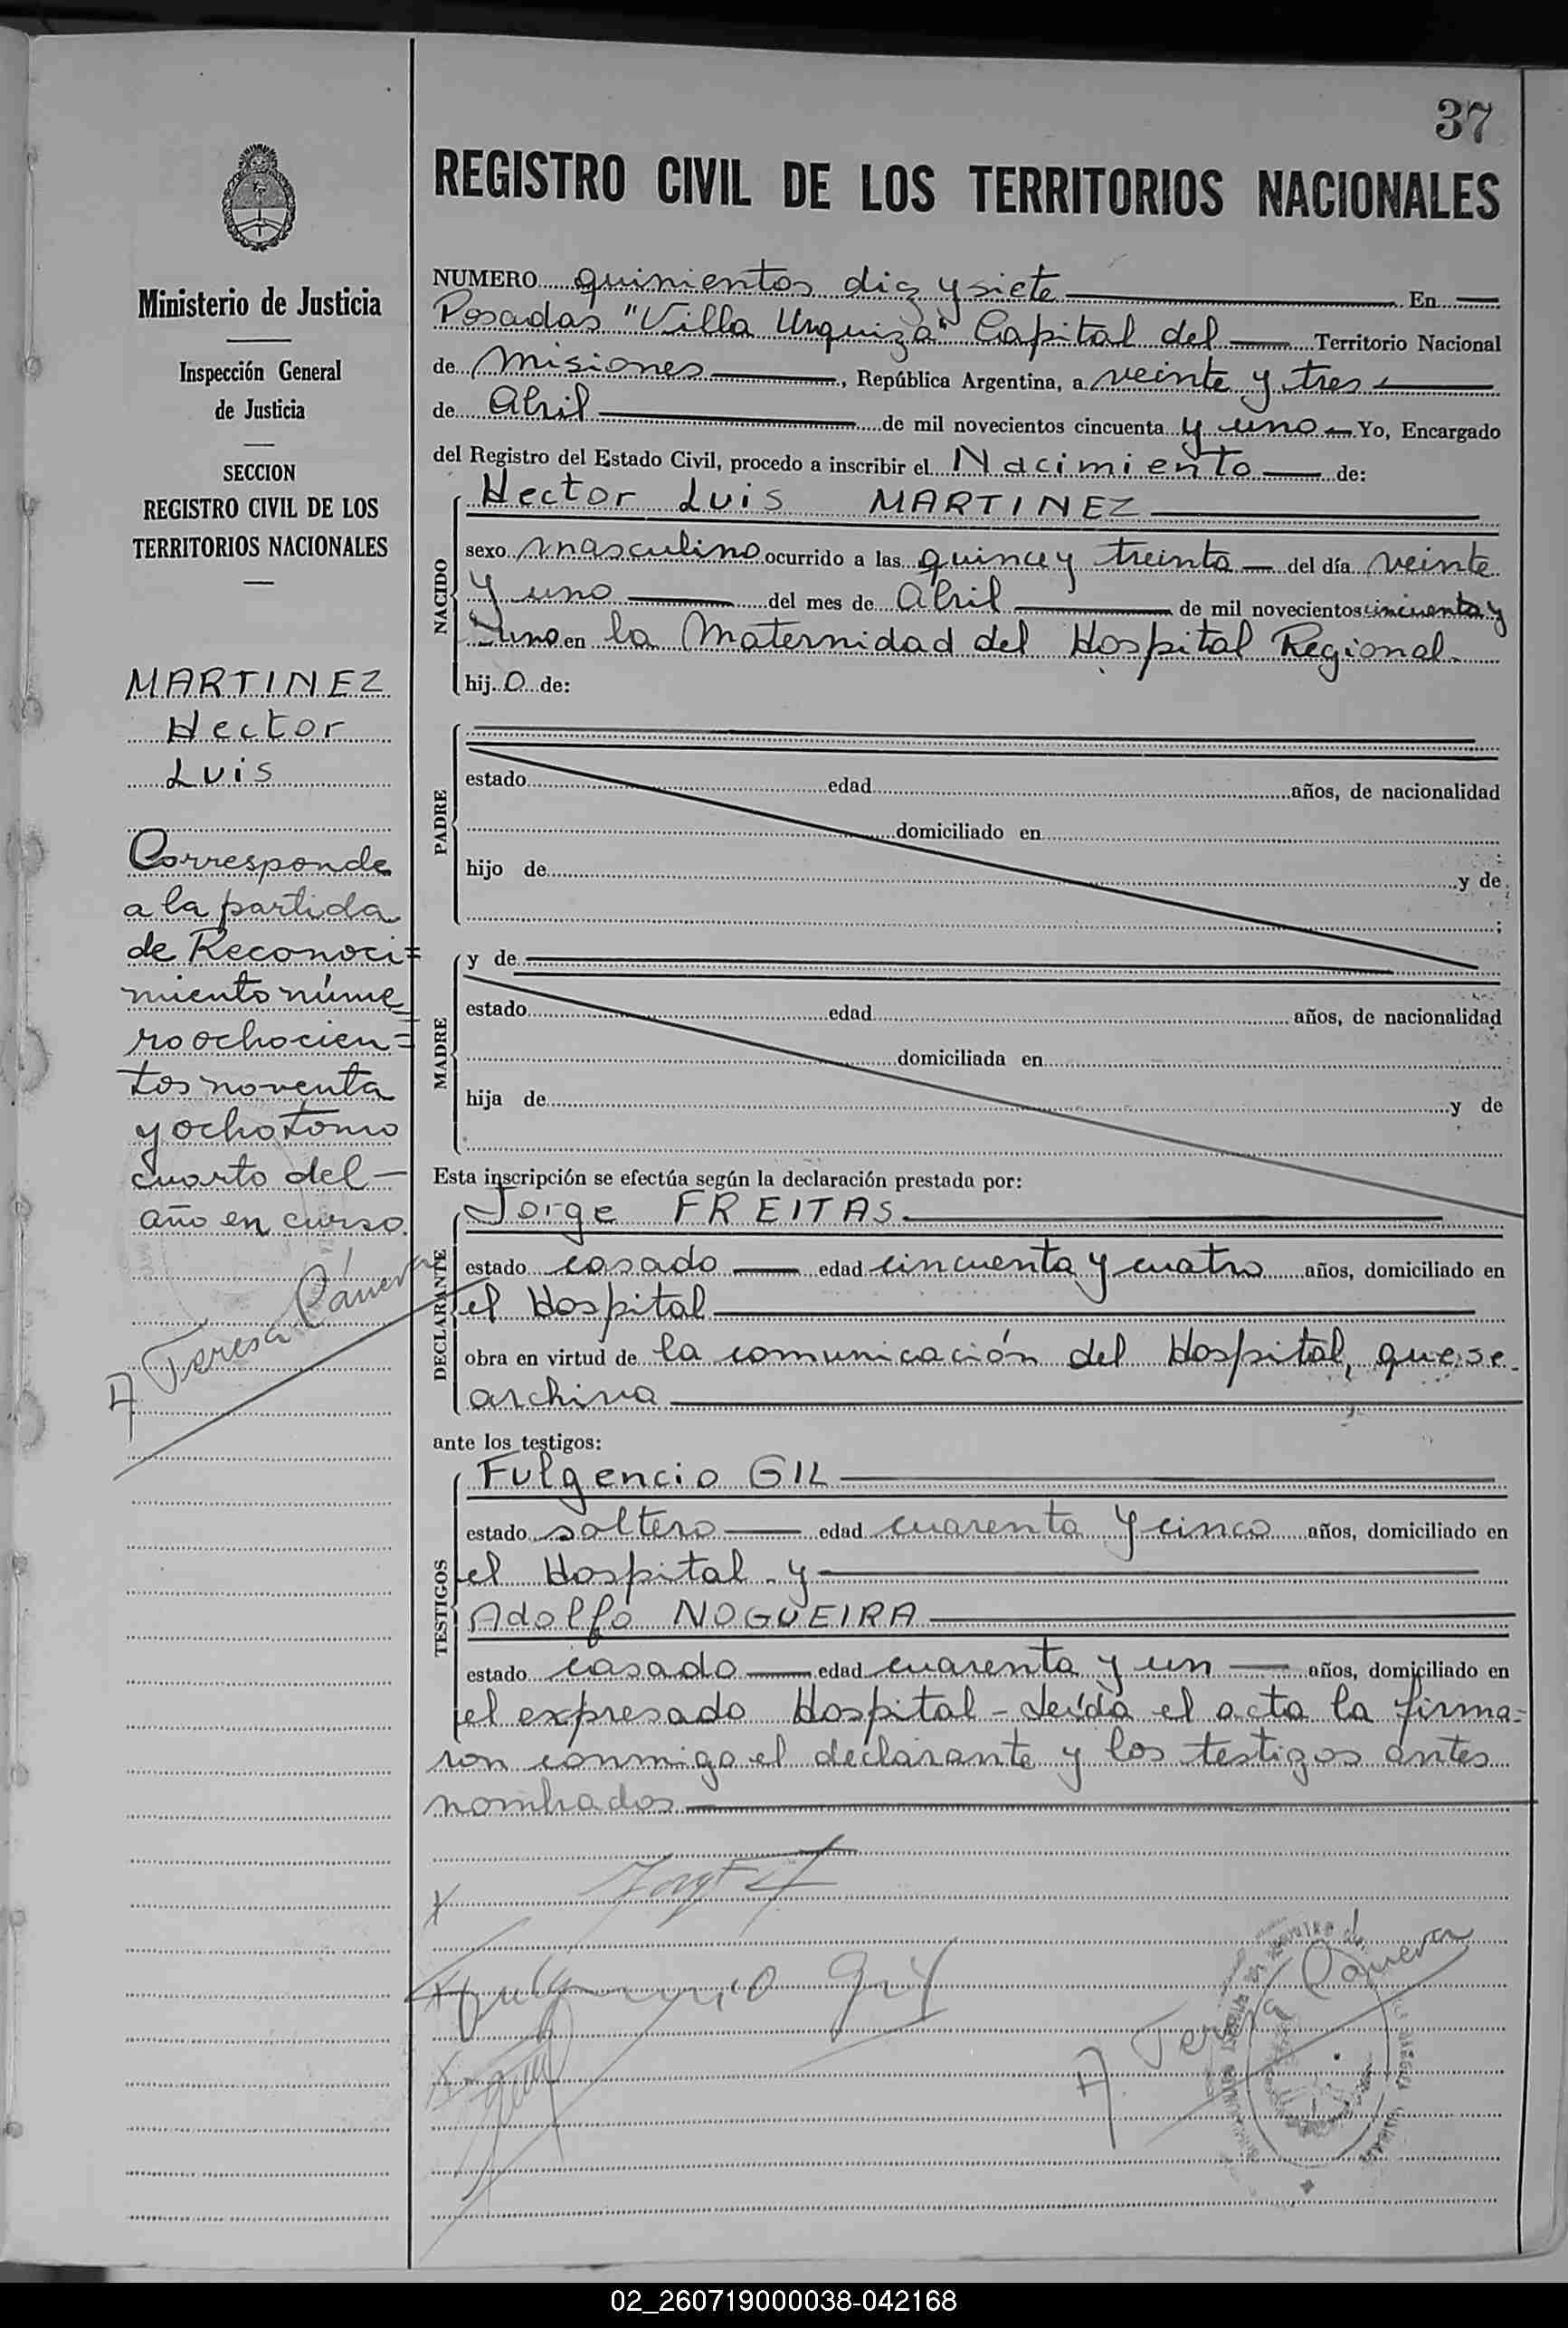 37
REGISTRO CIVIL DE LOS TERRITORIOS NACIONALES
Ministerio de Justicia
Inspección General
de Justicia
SECCION
REGISTRO CIVIL DE LOS
TERRITORIOS NACIONALES
MARTINEZ
Hector
Luis
Corresponde
a la partida
de Reconoci=
miento núme
ro ochocien=
tos noventa
y ocho Tomo
cuarto del —
año en curso.
A Teresa
NUMERO quinientos diez y siete En
Posadas "Villa Urquiza" Capital del Territorio Nacional
de Misiones, República Argentina, a veinte y tres
de Abril de mil novecientos cincuenta y uno Yo, Encargado
del Registro del Estado Civil, procedo a inscribir el Nacimiento de:
NACIDO
Hector Luis MARTINEZ
sexo masculino ocurrido a las quince y treinta del día veinte
y uno del mes de Abril de mil novecientos cincuenta y
uno en la Maternidad del Hospital Regional
hij o de:
PADRE
estado edad años, de nacionalidad
domiciliado en
hijo de y de
MADRE
y de
estado edad años, de nacionalidad
domiciliada en
hija de y de
Esta inscripción se efectúa según la declaración prestada por:
DECLARANTE
Jorge FREITAS
estado casado edad cincuenta y cuatro años, domiciliado en
el Hospital
obra en virtud de la comunicación del Hospital, que se
archiva
ante los testigos:
TESTIGOS
Fulgencio GIL
estado soltero edad cuarenta y cinco años, domiciliado en
el Hospital y
Adolfo NOGUEIRA
estado casado edad cuarenta y un años, domiciliado en
el expresado Hospital - Leída el acta la firma=
ron conmigo el declarante y los testigos antes
nombrados
Fulgencio Gil
A Teresa
02_260719000038-042168